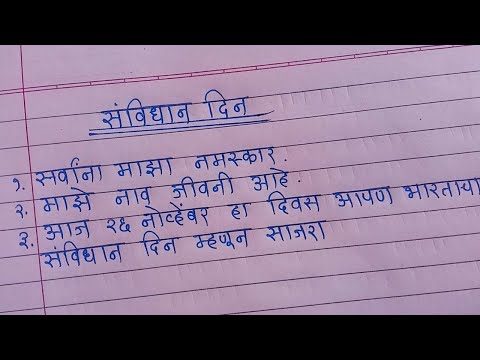 संविधान दिन
१. सर्वांना माझा नमस्कार.
२. माझे नाव जीवनी आहे.
३. आज २६ नोव्हेंबर हा दिवस आपण भारताचा
संविधान दिन म्हणून साजरा